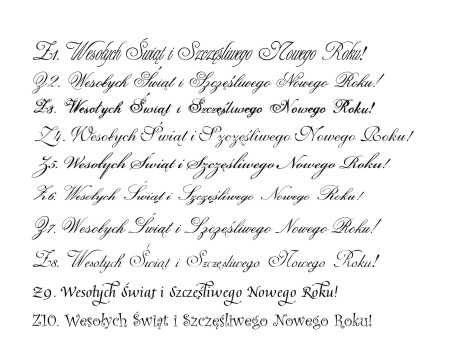 Z1. Wesołych Świąt i Szczęśliwego Nowego Roku!
Z2. Wesołych Świąt i Szczęśliwego Nowego Roku!
Z3. Wesołych Świąt i Szczęśliwego Nowego Roku!
Z4. Wesołych Świąt i Szczęśliwego Nowego Roku!
Z5. Wesołych Świąt i Szczęśliwego Nowego Roku!
Z6. Wesołych Świąt i Szczęśliwego Nowego Roku!
Z7. Wesołych Świąt i Szczęśliwego Nowego Roku!
Z8. Wesołych Świąt i Szczęśliwego Nowego Roku!
Z9. Wesołych Świąt i Szczęśliwego Nowego Roku!
Z10. Wesołych Świąt i Szczęśliwego Nowego Roku!